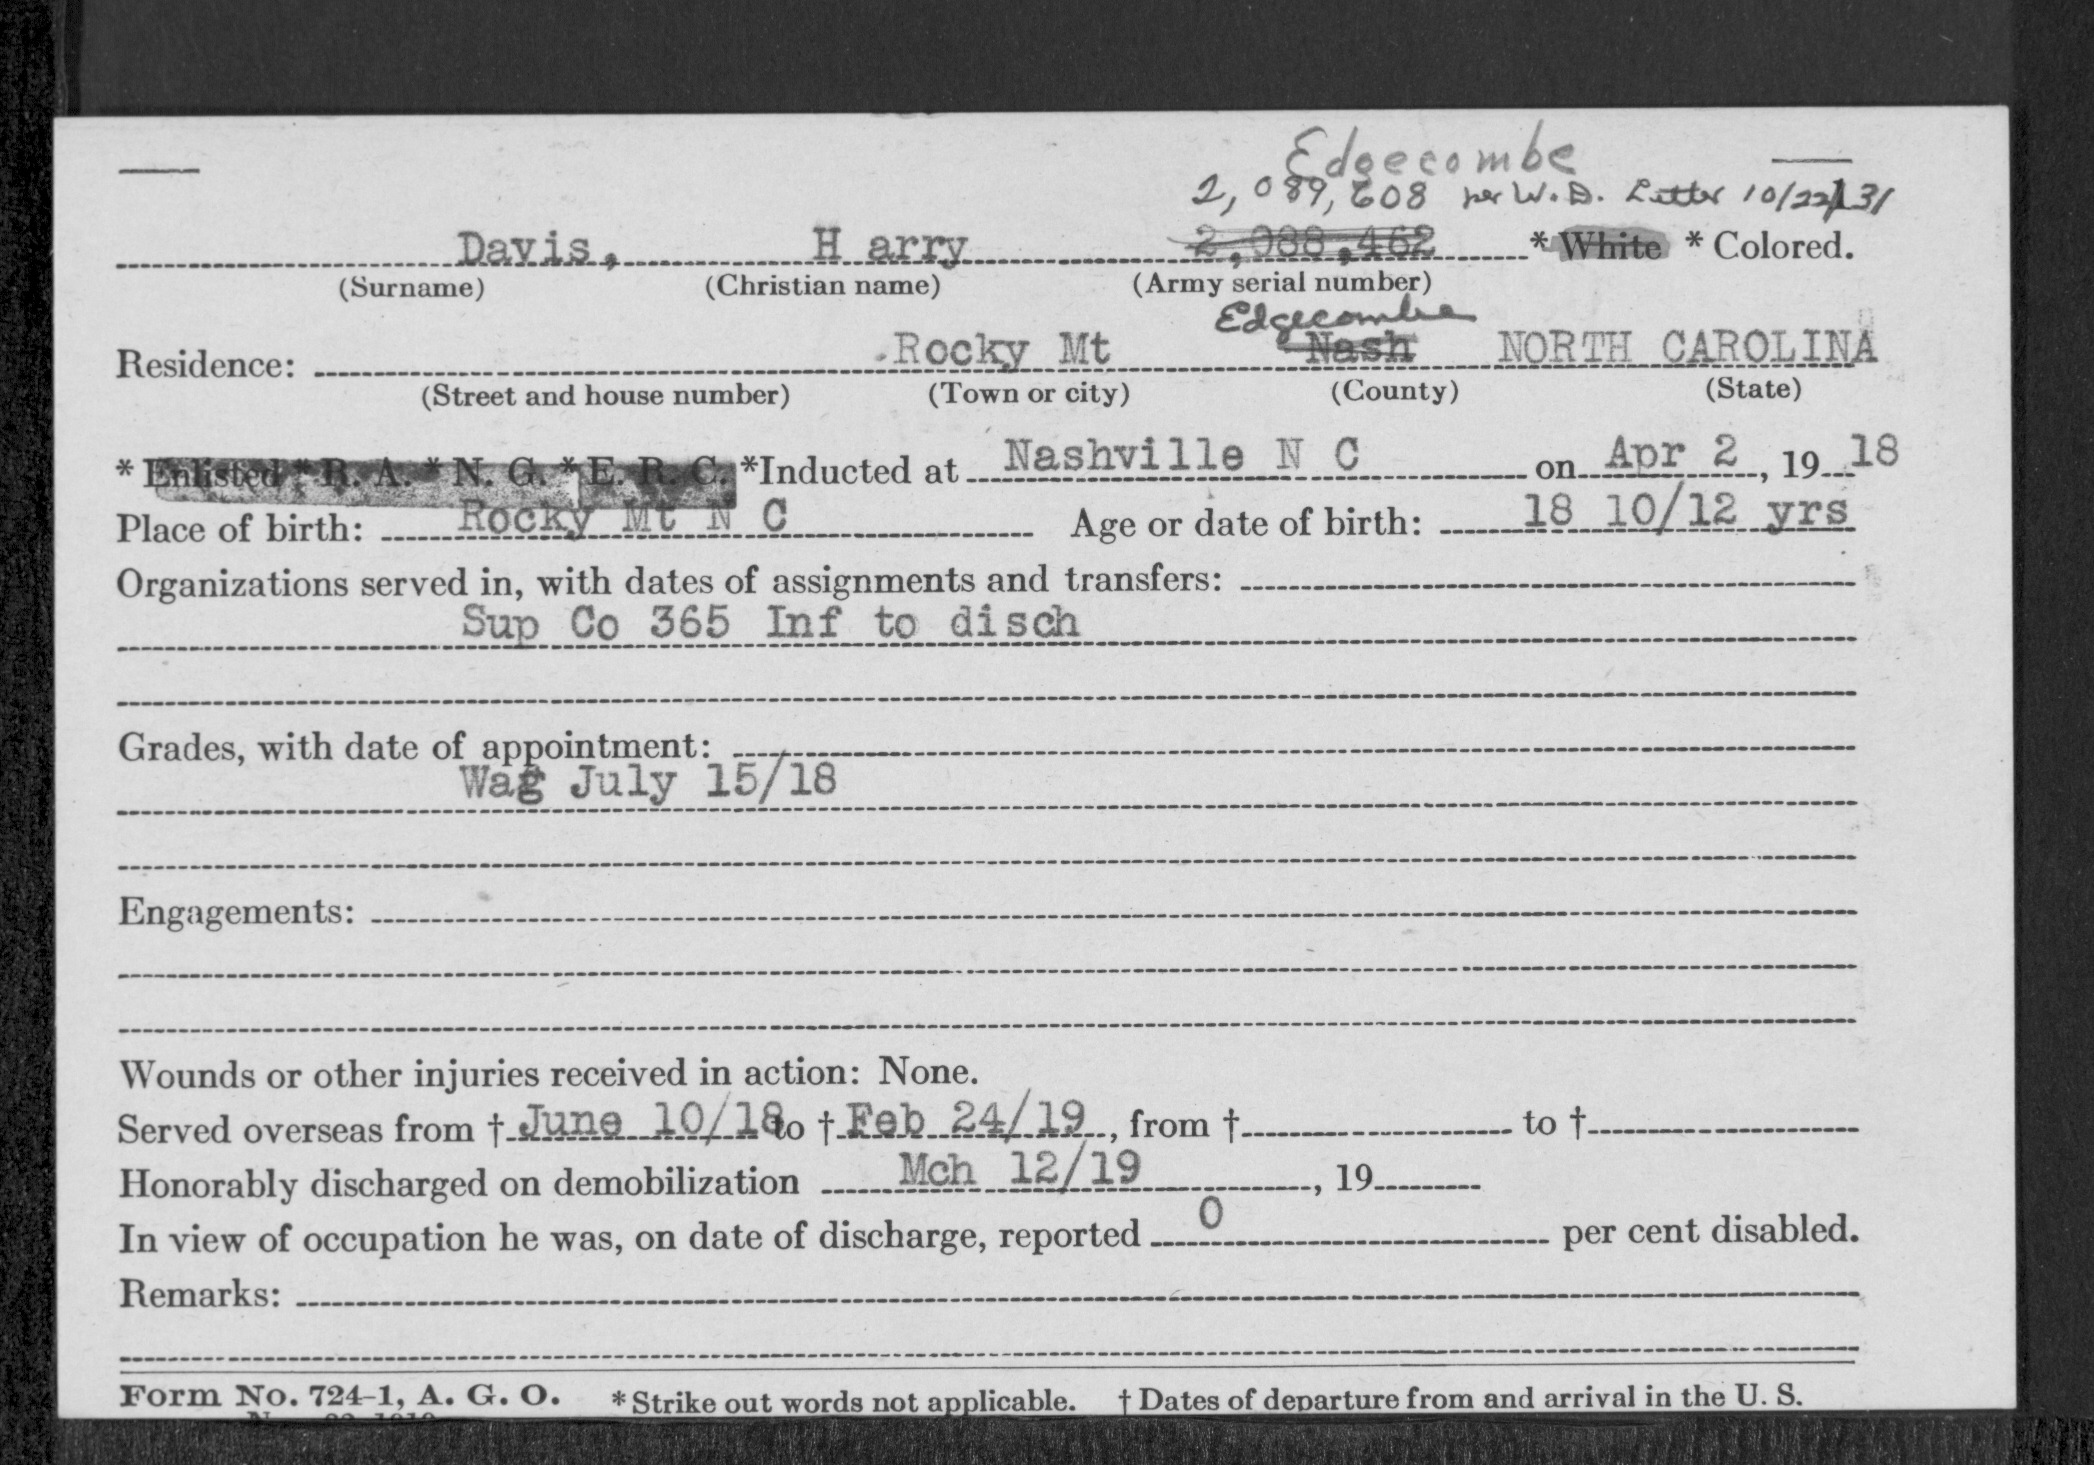 Edgecombe
2,089,608 per W.D. Letter 10/22/31
Davis, H arry 2,088,462 * White * Colored.
(Surname) (Christian name) (Army serial number)
Edgecombe
Residence: Rocky Mt Nash NORTH CAROLINA
(Street and house number) (Town or city) (County) (State)
* Enlisted * R. A. * N. G. * E. R. C. *Inducted at Nashville N C on Apr 2, 19 18
Place of birth: Rocky Mt N C Age or date of birth: 18 10/12 yrs
Organizations served in, with dates of assignments and transfers:
Sup Co 365 Inf to disch
Grades, with date of appointment:
Wag July 15/18
Engagements:
Wounds or other injuries received in action: None.
Served overseas from † June 10/18 to † Feb 24/19, from † to †
Honorably discharged on demobilization Mch 12/19, 19
In view of occupation he was, on date of discharge, reported 0 per cent disabled.
Remarks:
Form No. 724-1, A. G. O. * Strike out words not applicable. † Dates of departure from and arrival in the U. S.